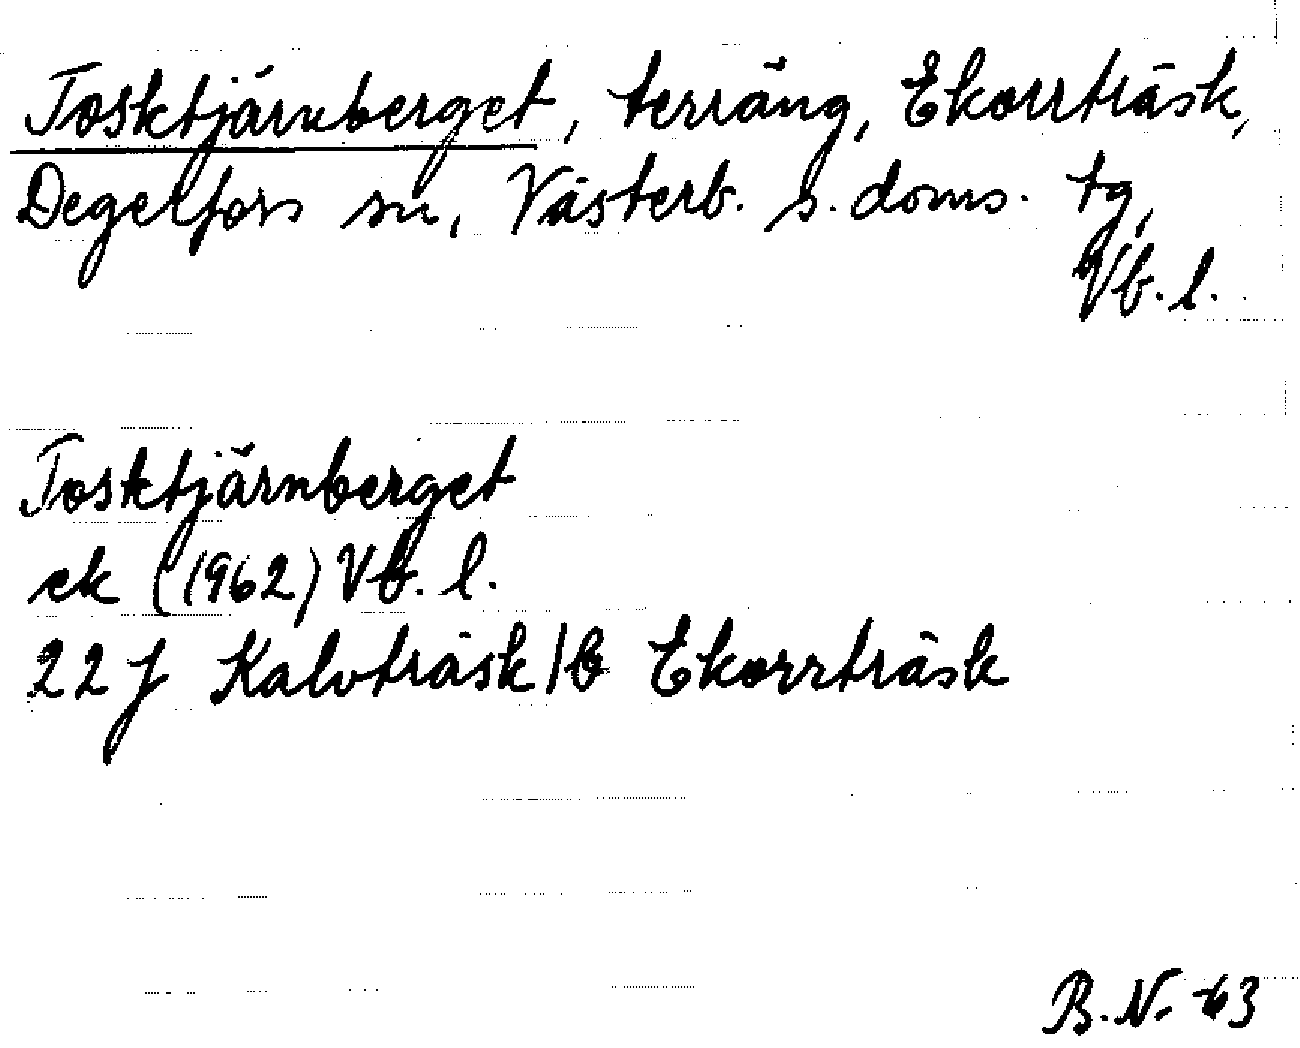 Tosktjärnberget, terräng, Ekorrträsk,
Degerfors sn, Västerb. s. doms. tg,
Vb. l.
Tosktjärnberget
ek (1962) Vb. l.
22 J Kalvträsk/b Ekorrträsk
B. N. 63